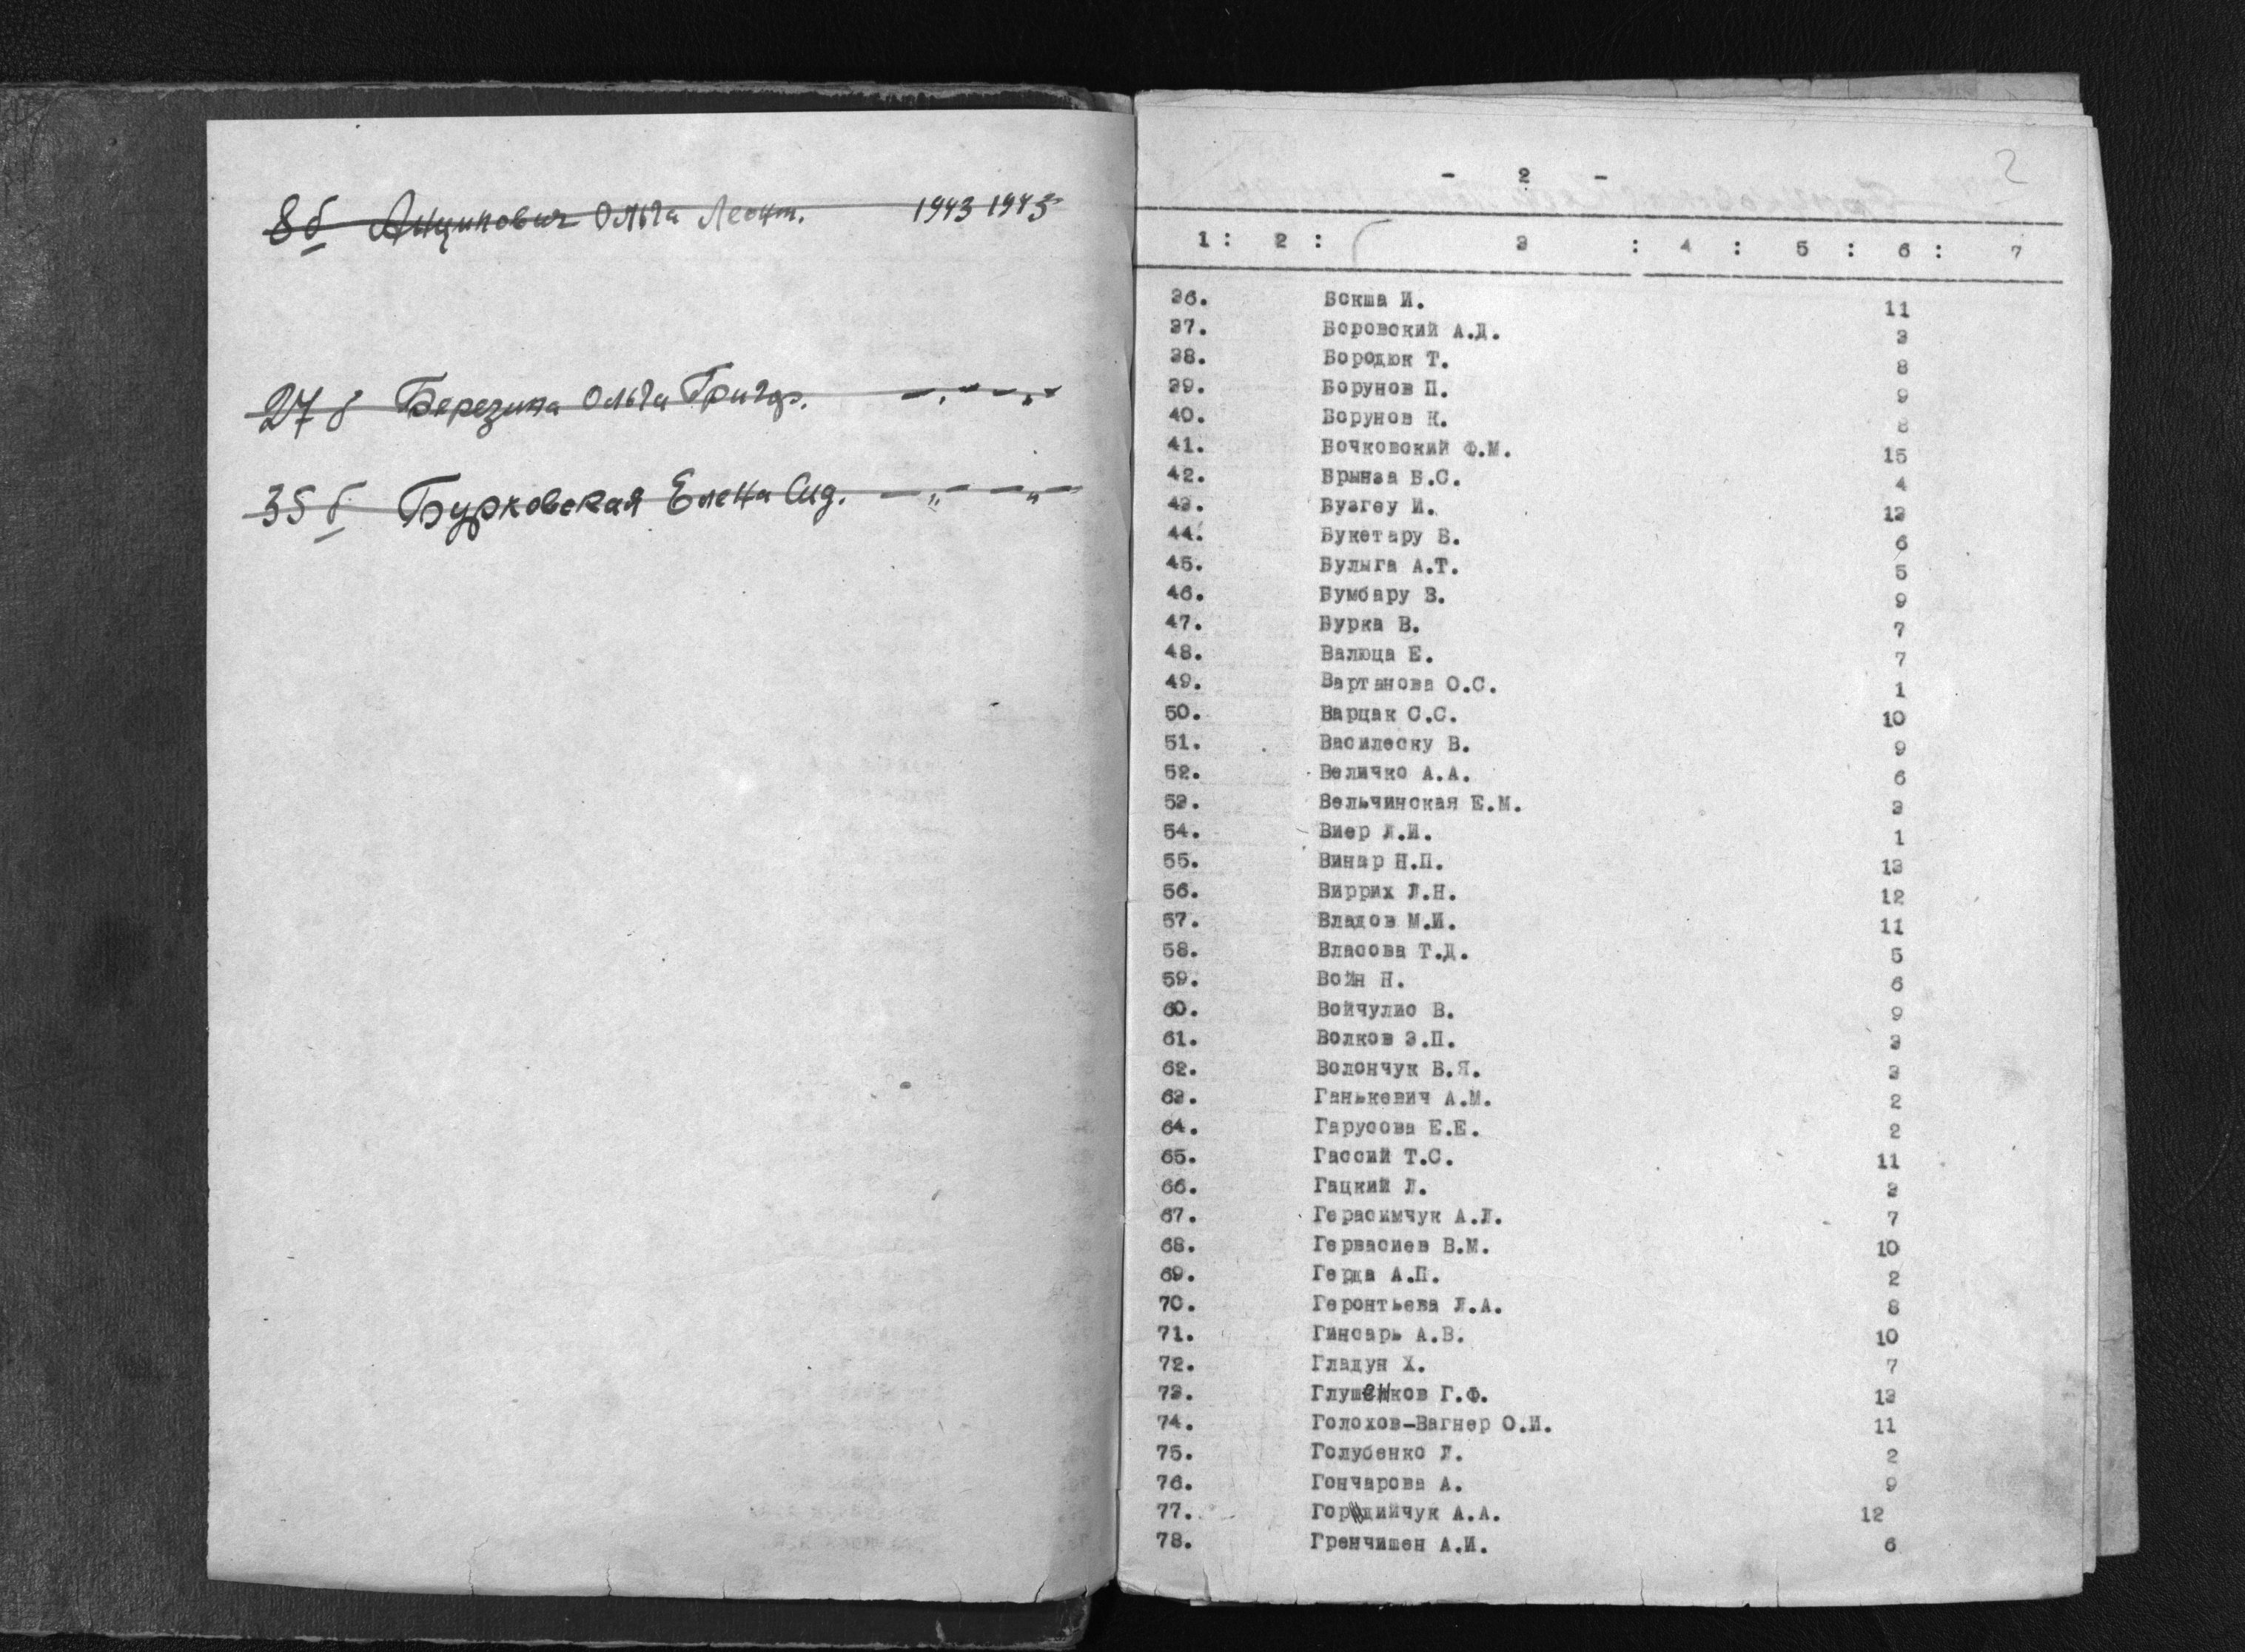 8б Анципович Ольга Леонт. 1943 1943
27 б Березина Ольга Григор. — " — — " —
35 б Бурковская Елена Сид. — " — — " —
2
- 2 -
1 : 2 : 3 : 4 : 5 : 6 : 7
36. Бокша И. 11
37. Боровский А.Д. 3
38. Бородюк Т. 8
39. Борунов П. 9
40. Борунов К. 8
41. Бочковский Ф.М. 15
42. Брынза Б.С. 4
43. Бузгеу И. 13
44. Букетару В. 6
45. Булыга А.Т. 5
46. Бумбару В. 9
47. Бурка В. 7
48. Валюца Е. 7
49. Вартанова О.С. 1
50. Варцак С.С. 10
51. Василеску В. 9
52. Величко А.А. 6
53. Вельчинская Е.М. 3
54. Виер Л.И. 1
55. Винар Н.П. 13
56. Виррих Л.Н. 12
57. Владов М.И. 11
58. Власова Т.Д. 5
59. Войн Н. 6
60. Войчулис В. 9
61. Волков Э.П. 3
62. Волончук В.Я. 3
63. Ганькевич А.М. 2
64. Гарусова Е.Е. 2
65. Гассий Т.С. 11
66. Гацкий Л. 3
67. Герасимчук А.Л. 7
68. Гервасиев В.М. 10
69. Герда А.П. 2
70. Геронтьева Л.А. 8
71. Гинсарь А.В. 10
72. Гладун Х. 7
73. Глушенков Г.Ф. 13
74. Голохов-Вагнер О.И. 11
75. Голубенко Л. 2
76. Гончарова А. 9
77. Гордийчук А.А. 12
78. Гренчишен А.И. 6